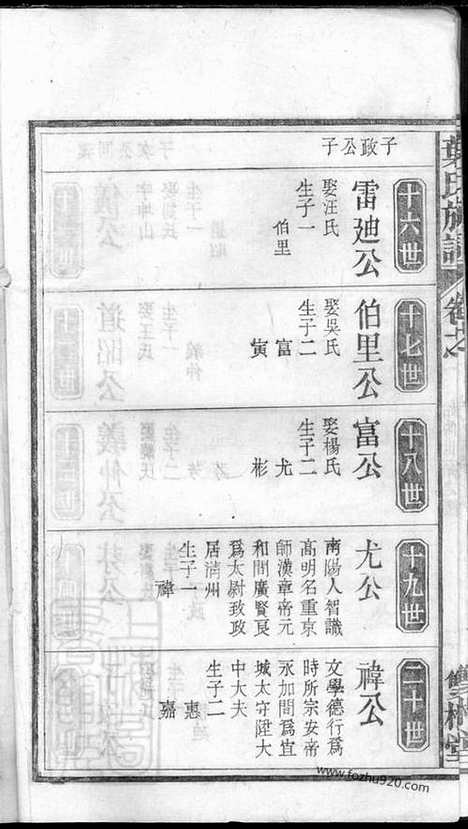 氏族譜
卷之
子政公子
十六世
雷廸公
娶汪氏
生子一
伯里
十七世
伯里公
娶吳氏
生子二
富
寅
十八世
富公
娶楊氏
生子二
尤
彬
十九世
尤公
南陽人智識
高明名重京
師漢章帝元
和間廣賢良
為太尉致政
居清州
生子一
禕
二十世
禕公
文學德行為
時所宗安帝
永加間為宜
城太守陞大
中大夫
生子二
惠
嘉
www.fozhu920.com